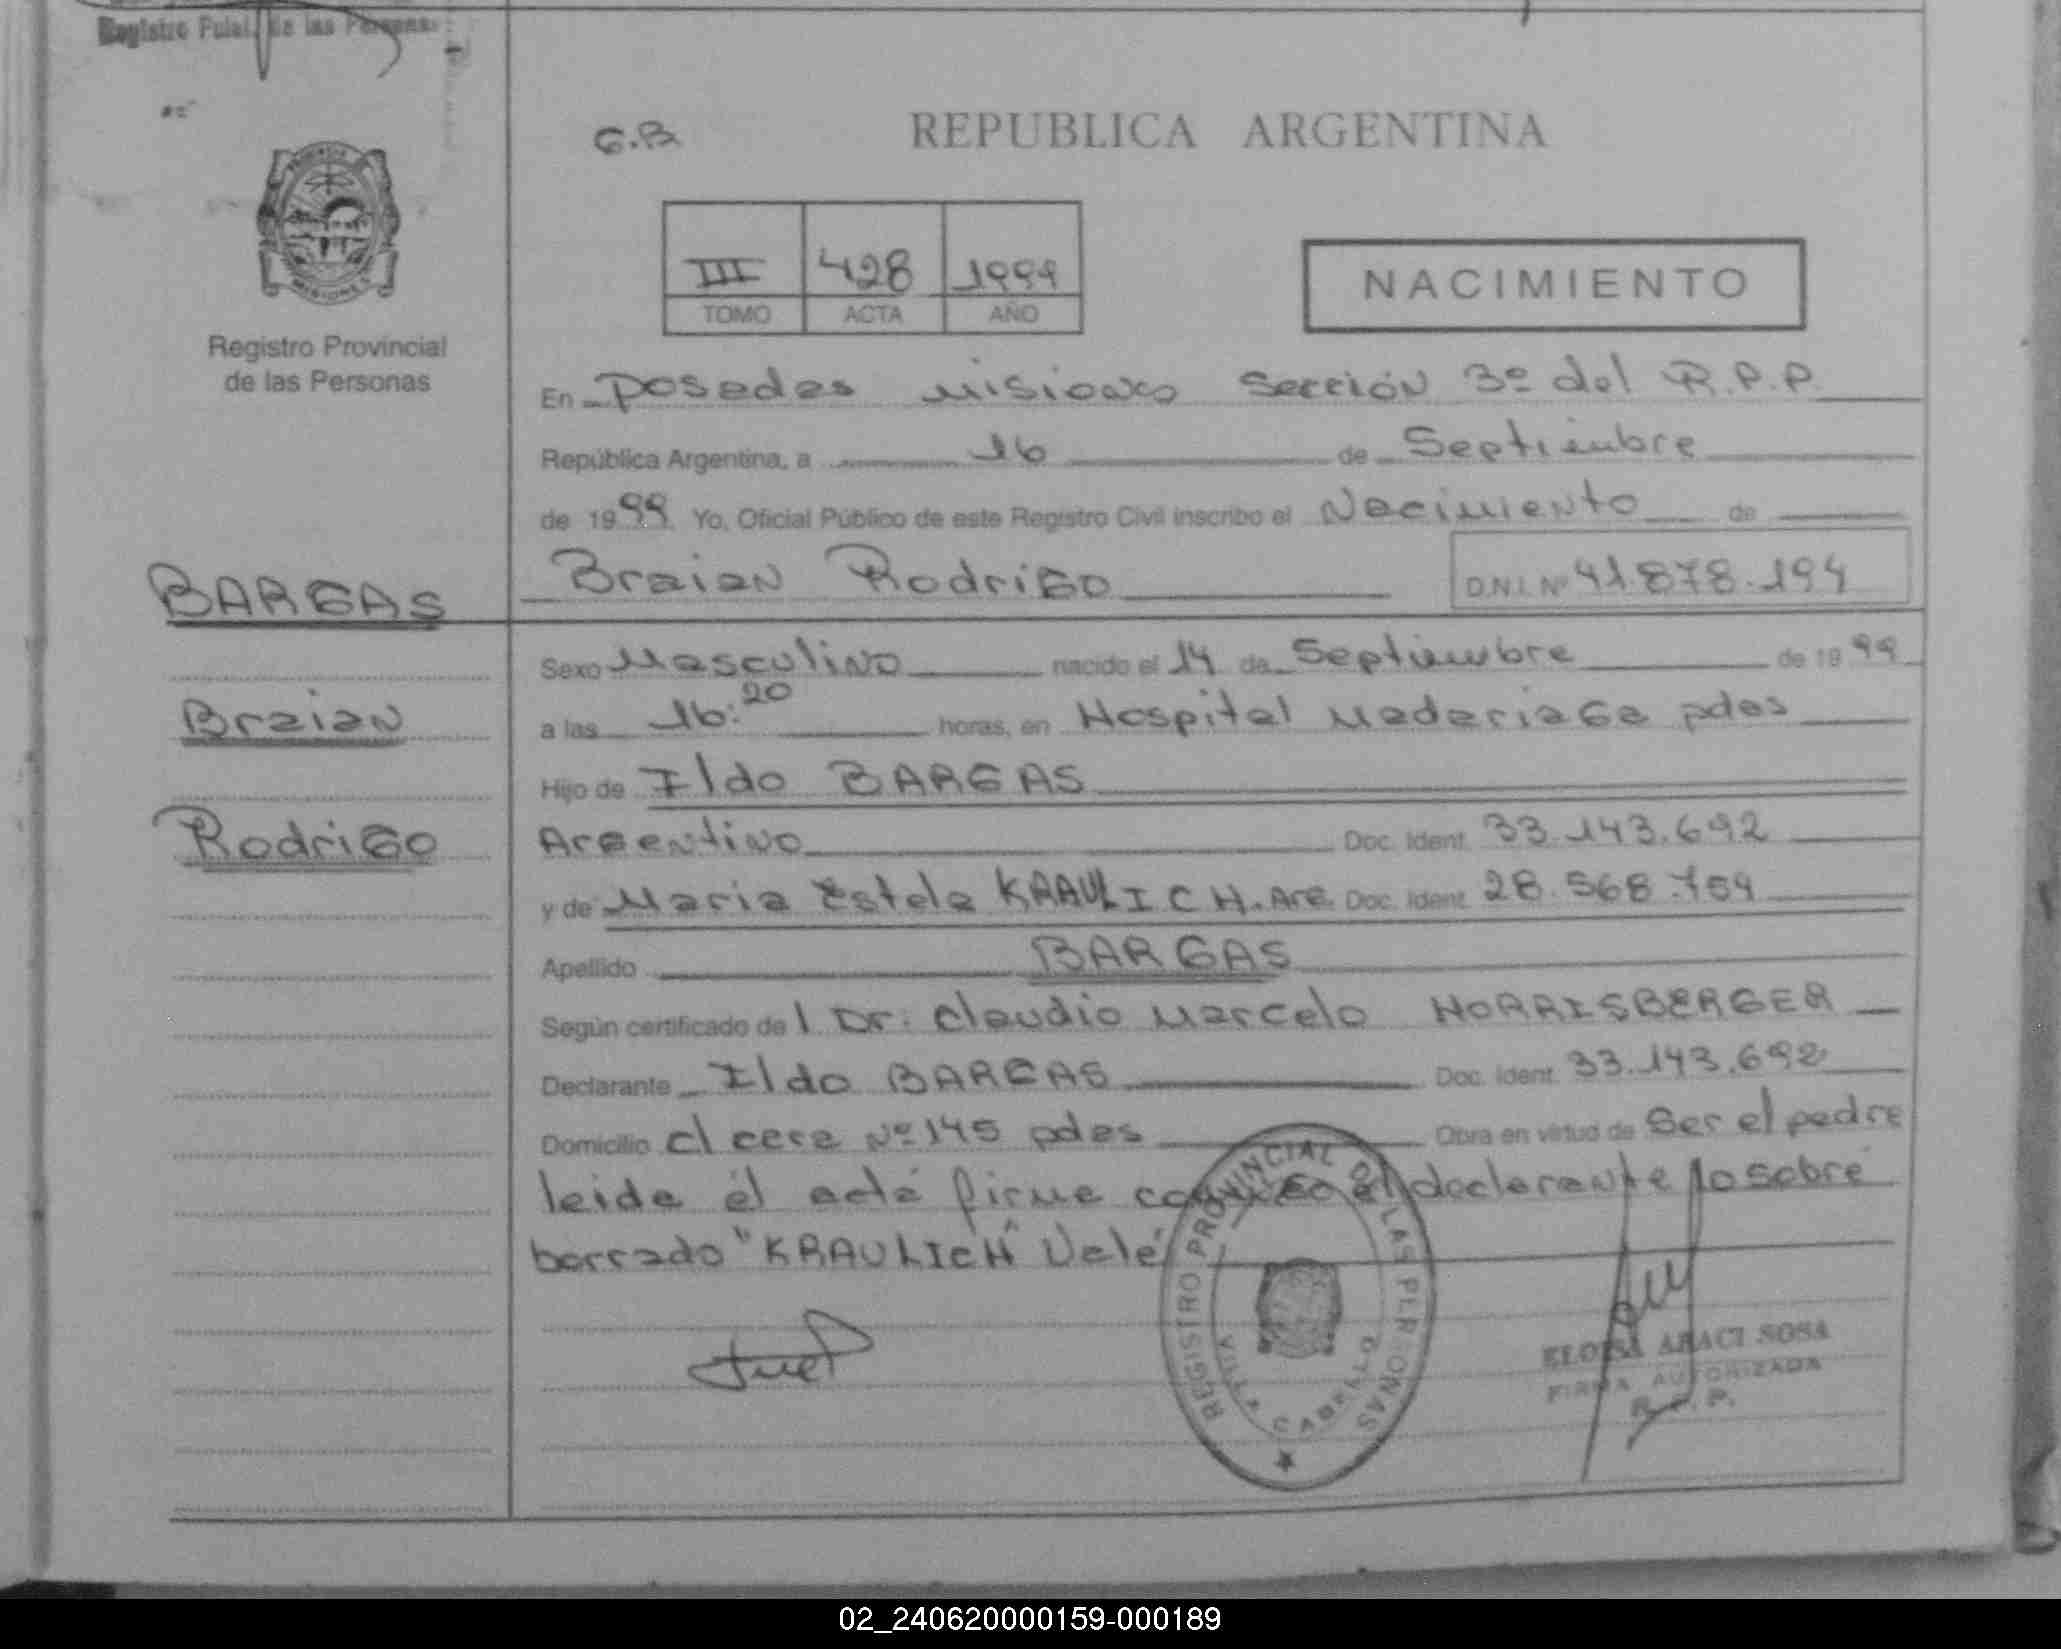 Registro Pcial. de las Personas
G.B
REPUBLICA ARGENTINA
III 428 1999
TOMO ACTA AÑO
NACIMIENTO
PROVINCIA
MISIONES
Registro Provincial
de las Personas
En Posadas misiones Sección 3º del R.P.P.
República Argentina, a 16 de Septiembre
de 1999 Yo, Oficial Público de este Registro Civil inscribo el Nacimiento de
BARGAS
Braian Rodrigo D.N.I. Nº 41.878.194
Sexo Masculino nacido el 14 de Septiembre de 1999
Braian
a las 16:20 horas, en Hospital Madariaga pdas
Hijo de Ildo BARGAS
Rodrigo
Argentino Doc. Ident. 33.143.692
y de Maria Estela KRAULICH. Arg. Doc. Ident. 28.568.759
Apellido BARGAS
Según certificado de l Dr. Claudio Marcelo HORRISBERGER
Declarante Ildo BARGAS Doc. Ident. 33.143.692
Domicilio cl cese Nº 145 pdas Obra en virtud de Ser el padre
leida el acta firma conmigo el declarante lo sobre
borrado "KRAULICH" Vale
REGISTRO PROVINCIAL DE LAS PERSONAS
VILLA CABELLO
ELOISA ARACI SOSA
FIRMA AUTORIZADA
R.P.P.
02_240620000159-000189